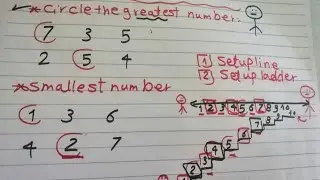 * Circle the greatest number.
7 3 5
2 5 4
1 Setupline
2 Setup ladder
* Smallest number
1 3 6
4 2 7
1 2 3 4 5 6 7 8 9 10
2 3 4 5 6 7 8 9 10